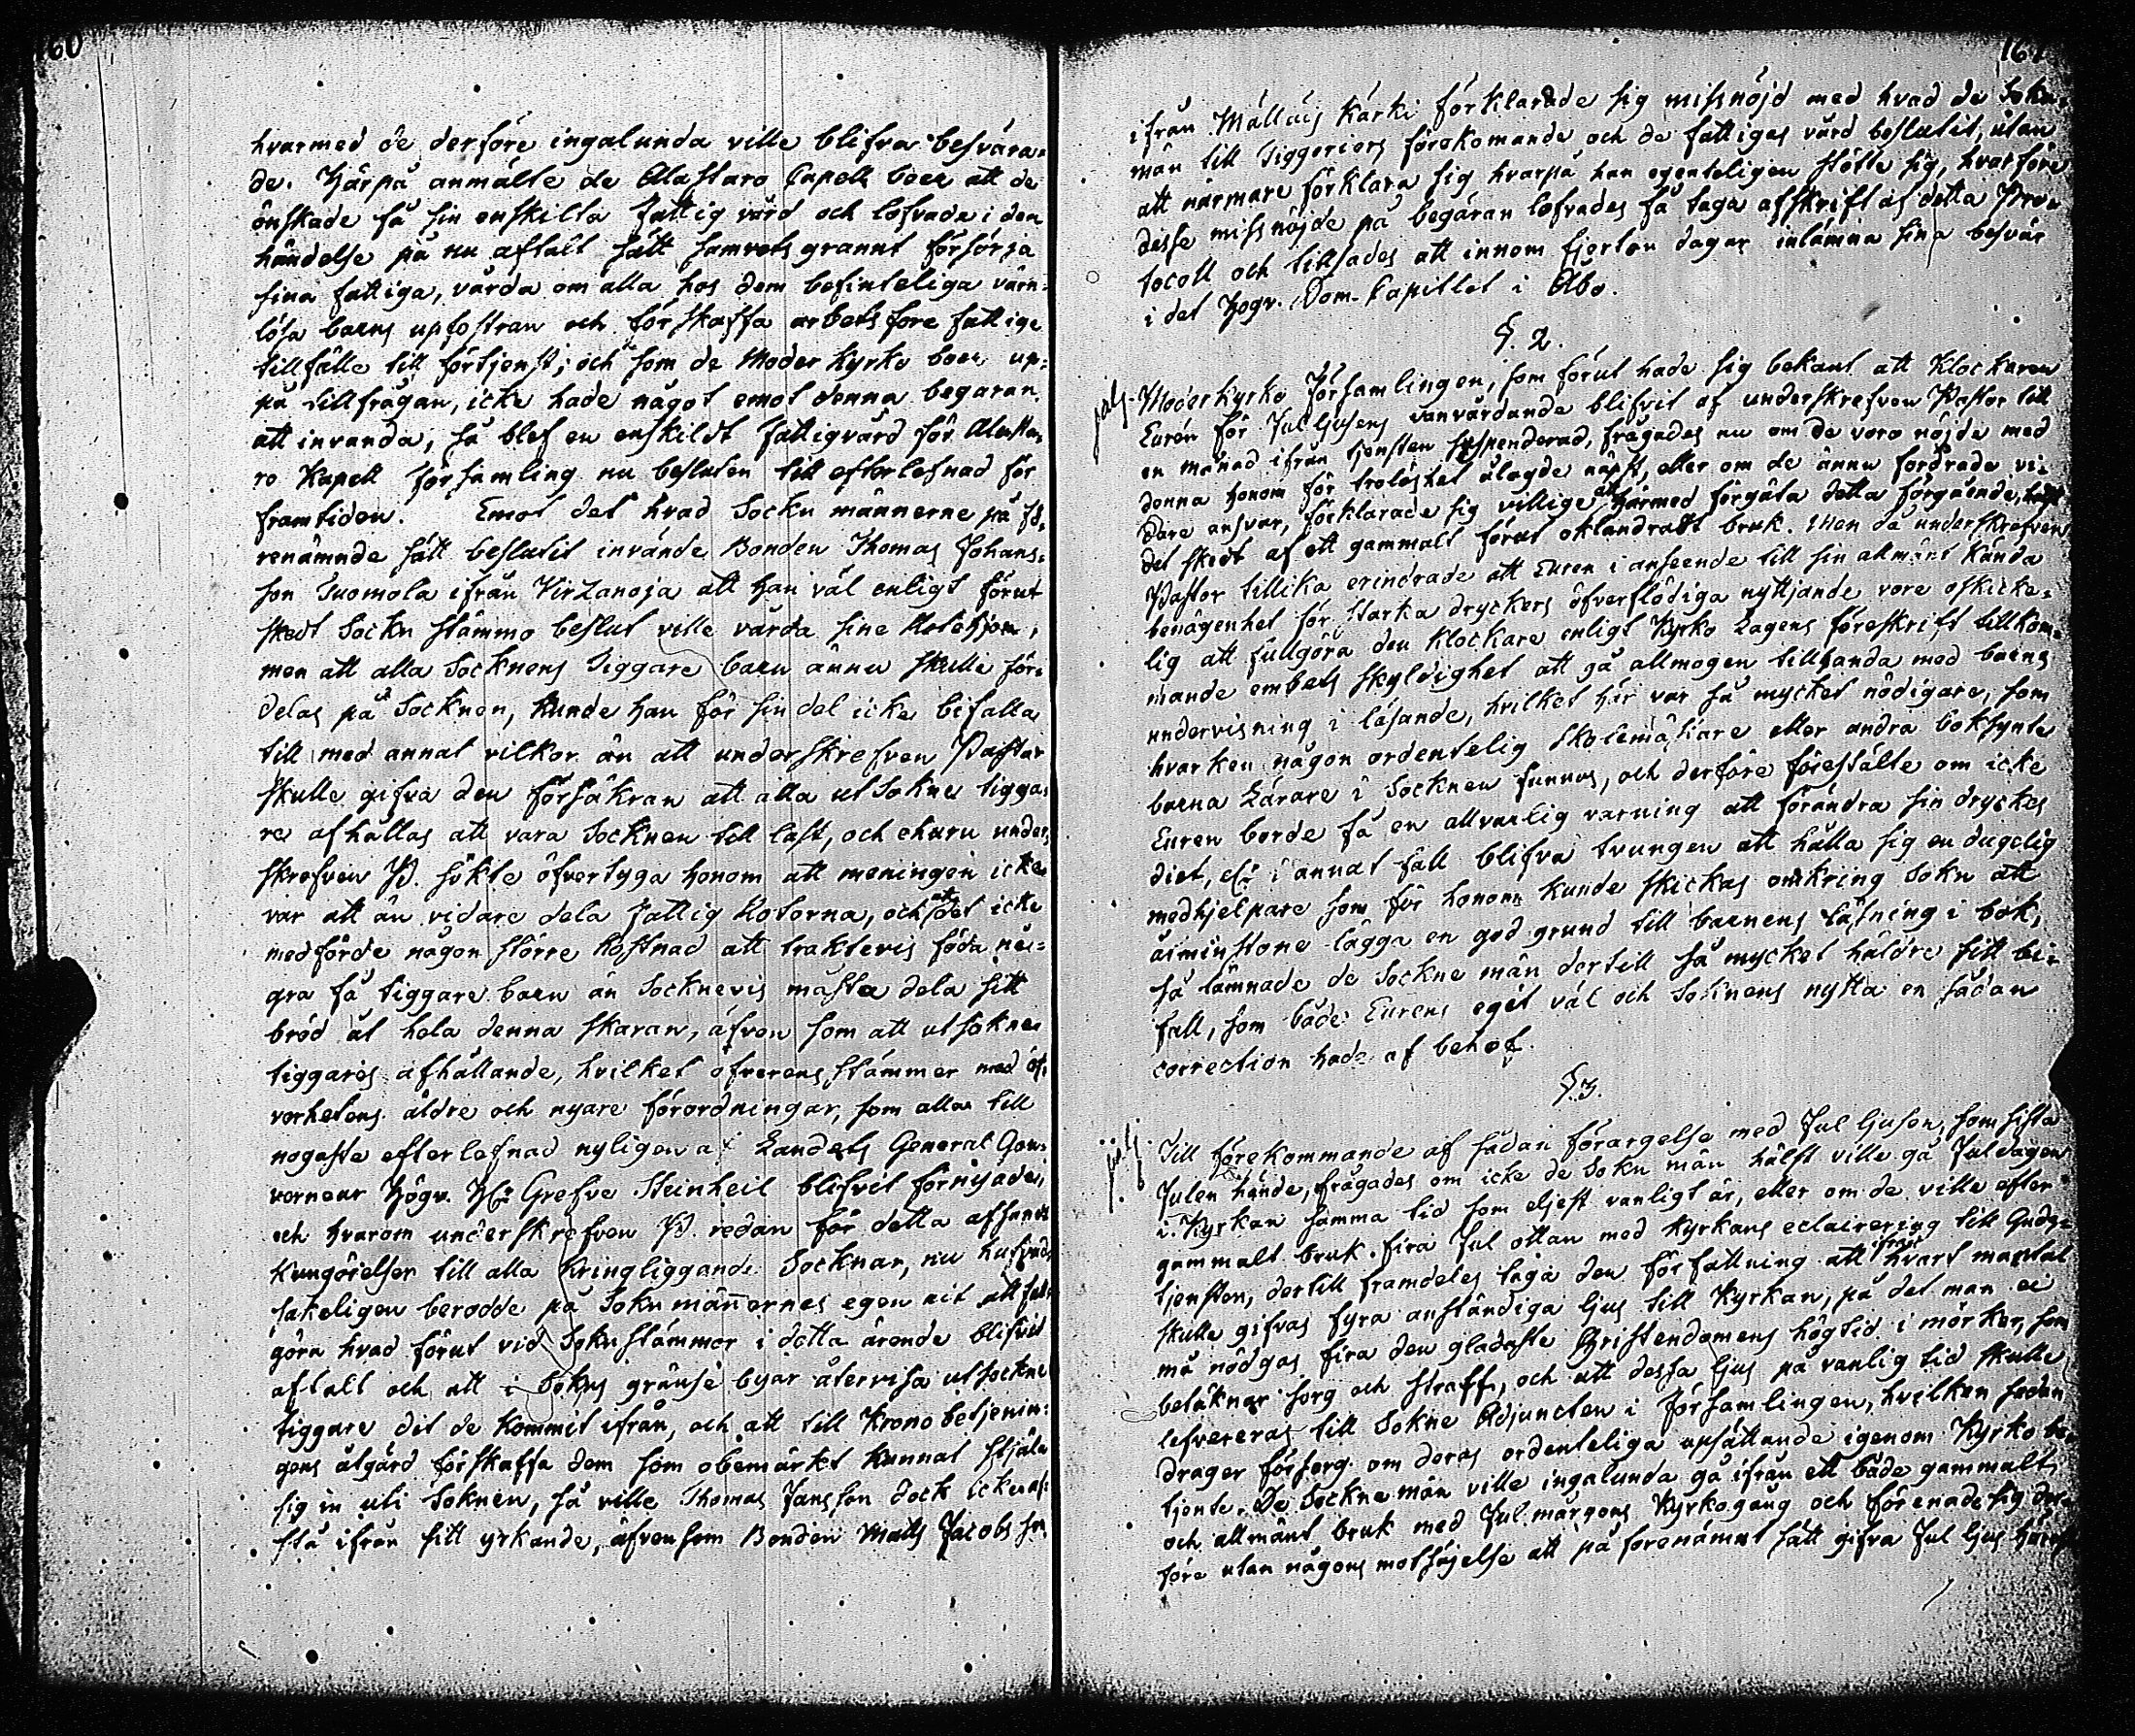 160
hvarmed de derföre ingalunda ville blifva besvära=
de. Härpå anmälte de Alastaro Capell boer att de
önskade få sin enskilta Fattig vård och lofvade i den
händelse på nu aftalt sätt samvets grannt försörja
sina fattiga, vårda om alla hos dem befinteliga värn=
lösa barns upfostran och förskaffa arbets före fattige
tillfälle till förtjenst; och som de Moder Kyrko boer up=
på tillfrågan, icke hade något emot denna begäran
att invända, så blef en enskildt Fattigvård för Alasta=
ro Kapell Församling nu besluten till efterlefnad för
framtiden. Emot det hvad Sockn männerne på fö=
renämnde sätt beslutit invände Bonden Thomas Johans=
son Suomola ifrån Virzanoja att han väl enligt förut
skedt Sockn stämmo beslut ville vårda sine Rotehjon,
men att alla Socknens Tiggare barn ännu skulle för=
delas på Socknen, kunde han för sin del icke bifalla
till med annat vilkor än att underskrefven Pastor
skulle gifva den försäkran att alla ut Sokne tigga=
re afhållas att vara Socknen till last, och ehuru under=
skrefven P. sökte öfvertyga honom att meningen icke
var att än vidare dela Fattig Roterna, och att det icke
medförde någon större kostnad att traktevis föda nå=
gra få tiggare barn än Socknevis måsta dela sitt
bröd åt hela denna skaran, äfven som att utsokne
tiggares afhållande, hvilket öfverensstämmer med öf=
verhetens äldre och nyare förordningar, som alla till
nogaste efterlefnad nyligen af Landets General Gou=
verneur Högv. H:r Grefve Steinheil blifvit förnyade,
och hvarom underskrefven P. redan för detta afsändt
kungörelser till alla kringliggande Socknar, nu hufvud=
sakeligen berodde på Sokn männernes egen nit att full=
göra hvad förut vid Soknstämmor i detta ärende blifvit
aftalt och att i Sokns gränse byar återvisa utsockne
tiggare dit de kommit ifrån, och att till Krono betjenin=
gens åtgärd förskaffa dem som obemärkt kunnat stjäla
sig in uti Soknen, så ville Thomas Jansson dock icke af=
stå ifrån sitt yrkande, äfvensom Bonden Matts Jacobsson
161
ifrån Mälläis Kärki förklarade sig missnöjd med hvad de Sokn=
män till Tiggeriers förekomande och de fattigas vård beslutit, utan
att närmare förklara sig hvarpå han egenteligen stötte sig, hvarföre
desse missnöjde på begäran lofvades få taga afskrift af detta Pro=
tocoll och tillsades att innom fjorton dagar inlämna sina besvär
i det Högv. Dom-Capitlet i Åbo.
§. 2.
Moderkyrko Församlingen, som förut hade sig bekant att Klockaren
Eurén för Jul ljusens vanvårdande blifvit af underskrefven Pastor till
en månad ifrån tjensten suspenderad, frågades nu om de voro nöjde med
denna honom för tröslöshet ålagde näpst, eller om de ännu fordrade vi=
dare ansvar, förklarade sig villige att härmed förgäta detta förgående,
det skedt af ett gammalt förut oklandradt bruk. Men då underskrefven
Pastor tillika erindrade att Euren i anseende till sin allmänt kända
benägenhet för starka dryckers öfverflödiga nyttjande vore oskicke=
lig att fullgöra den Klockare enligt Kyrko Lagens föreskrift tillkom=
mande embets skyldighet att gå allmogen tillhanda med barns
undervisning i läsande, hvilket här var så mycket nödigare, som
hvarken någon ordentelig Skolemästare eller andra boksynte
barna Lärare i Socknen funnos, och derföre föreslälte om icke
Euren borde få en allvarlig varning att förändra sin dryckes
diet, el:r i annat fall blifva tvungen att hålla sig en dugelig
medhjelpare som för honom kunde skickas omkring Sokn att
åiminstone lägga en god grund till barnens läsning i bok,
så lämnade de Sockne män dertill så mycket häldre sitt bi=
fall, som både Eurens eget väl och Soknens nytta en sådan
correction hade af behof.
§. 3.
Till förekommande af sådan förargelse med Jul ljusen, som sista
Julen hände, frågades om icke de Sokn män hälst ville gå Juldagen
i Kyrkan samma tid som eljest vanligt är, eller om de ville efter
gammalt bruk fira Jul ottan med kyrkans eclairering till Guds=
tjensten, dertill framdeles taga den författning att ifrån hvart mantal
skulle gifvas fyra anständiga ljus till Kyrkan, på det man ei
må nödgas fira den gladaste Christendomens högtid i mörker, som
betäknar sorg och straff, och att dessa ljus på vanlig tid skulle
lefvereras till Sokne Adjuncten i Församlingen, hvilken sedan
drager försorg om deras ordenteliga upsättande igenom Kyrko be=
tjente. De Sockne män ville ingalunda gå ifrån ett både gammalt
och allmänt bruk med Jul mårgons Kyrkogång och förenade sig der=
före utan någons motsäjelse att på förenämnt sätt gifva Jul ljus